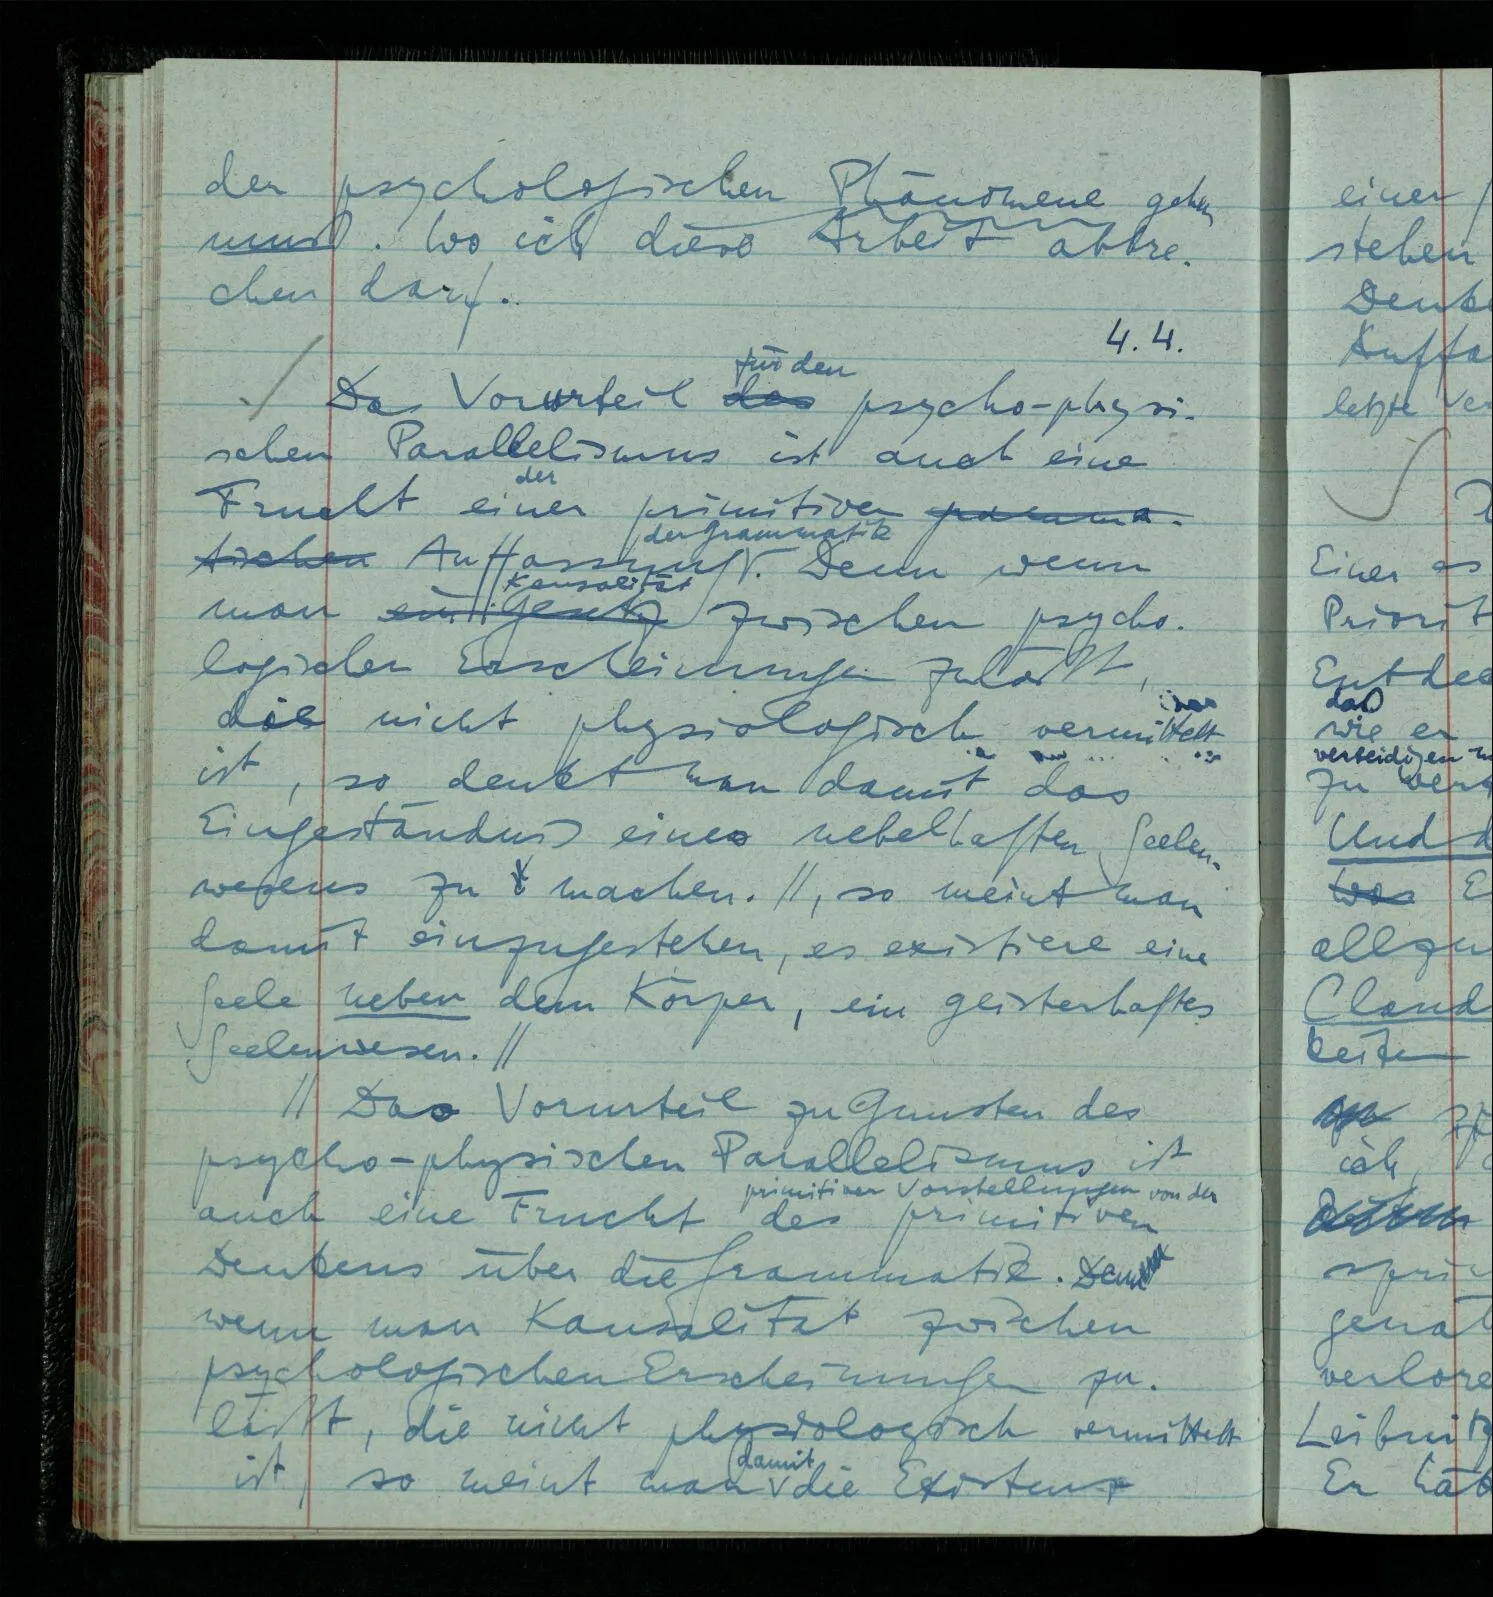 der psychologischen Phänomene gehen
muss. Wo ich diese Arbeit abbre-
chen darf.
4.4.
für den
Das Vorurteil des psycho-physi-
schen Parallelismus ist auch eine
der
Frucht einer primitiven gramma-
der Grammatik
tischen Auffassung. Denn wenn
Kausalität
man ein Gesetz zwischen psycho-
logischen Erscheinungen zuläßt,
die nicht physiologisch vermittelt
ist, so denkt man damit das
Eingeständnis eines nebelhaften Seelen-
wesens zu machen. //, so meint man
damit einzugestehen, es existiere eine
Seele neben dem Körper, ein geisterhaftes
Seelenwesen. //
// Das Vorurteil zu Gunsten des
psycho-physischen Parallelismus ist
primitiver Vorstellungen von der
auch eine Frucht des primitiven
Denkens über die Grammatik. Denn
wenn man Kausalität zwischen
psychologischen Erscheinungen zu-
läßt, die nicht physiologisch vermittelt
damit
ist, so meint man die Existenz
einer
stehen
letzte
Einer es
daß
wie er
verteidigen
zu
Und
was
ich,
Er